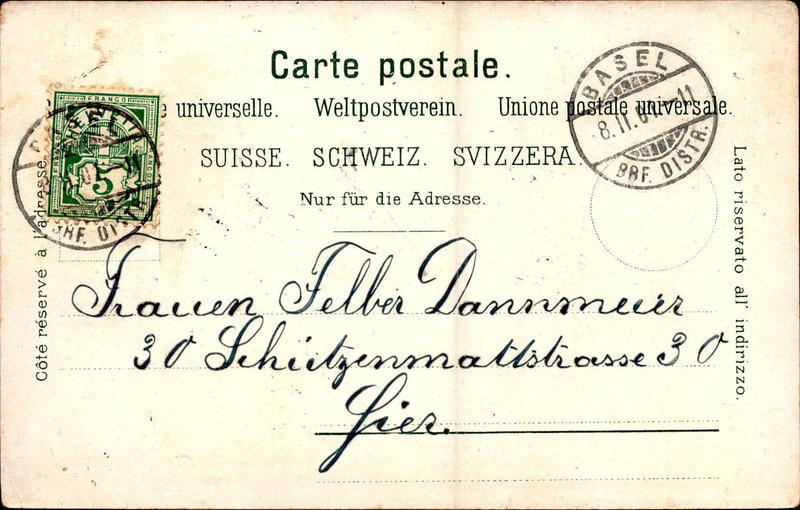 Carte postale.
e universelle. Weltpostverein. Unione postale universale.
SUISSE. SCHWEIZ. SVIZZERA
Nur für die Adresse.
Côté réservé à l'adresse.
Lato riservato all' indirizzo.
FRANCO
5
BRF. DISTR.
BASEL
BRF. DISTR.
Frauen Felber Dannmeier
30 Schützenmattstrasse 30
Hier.